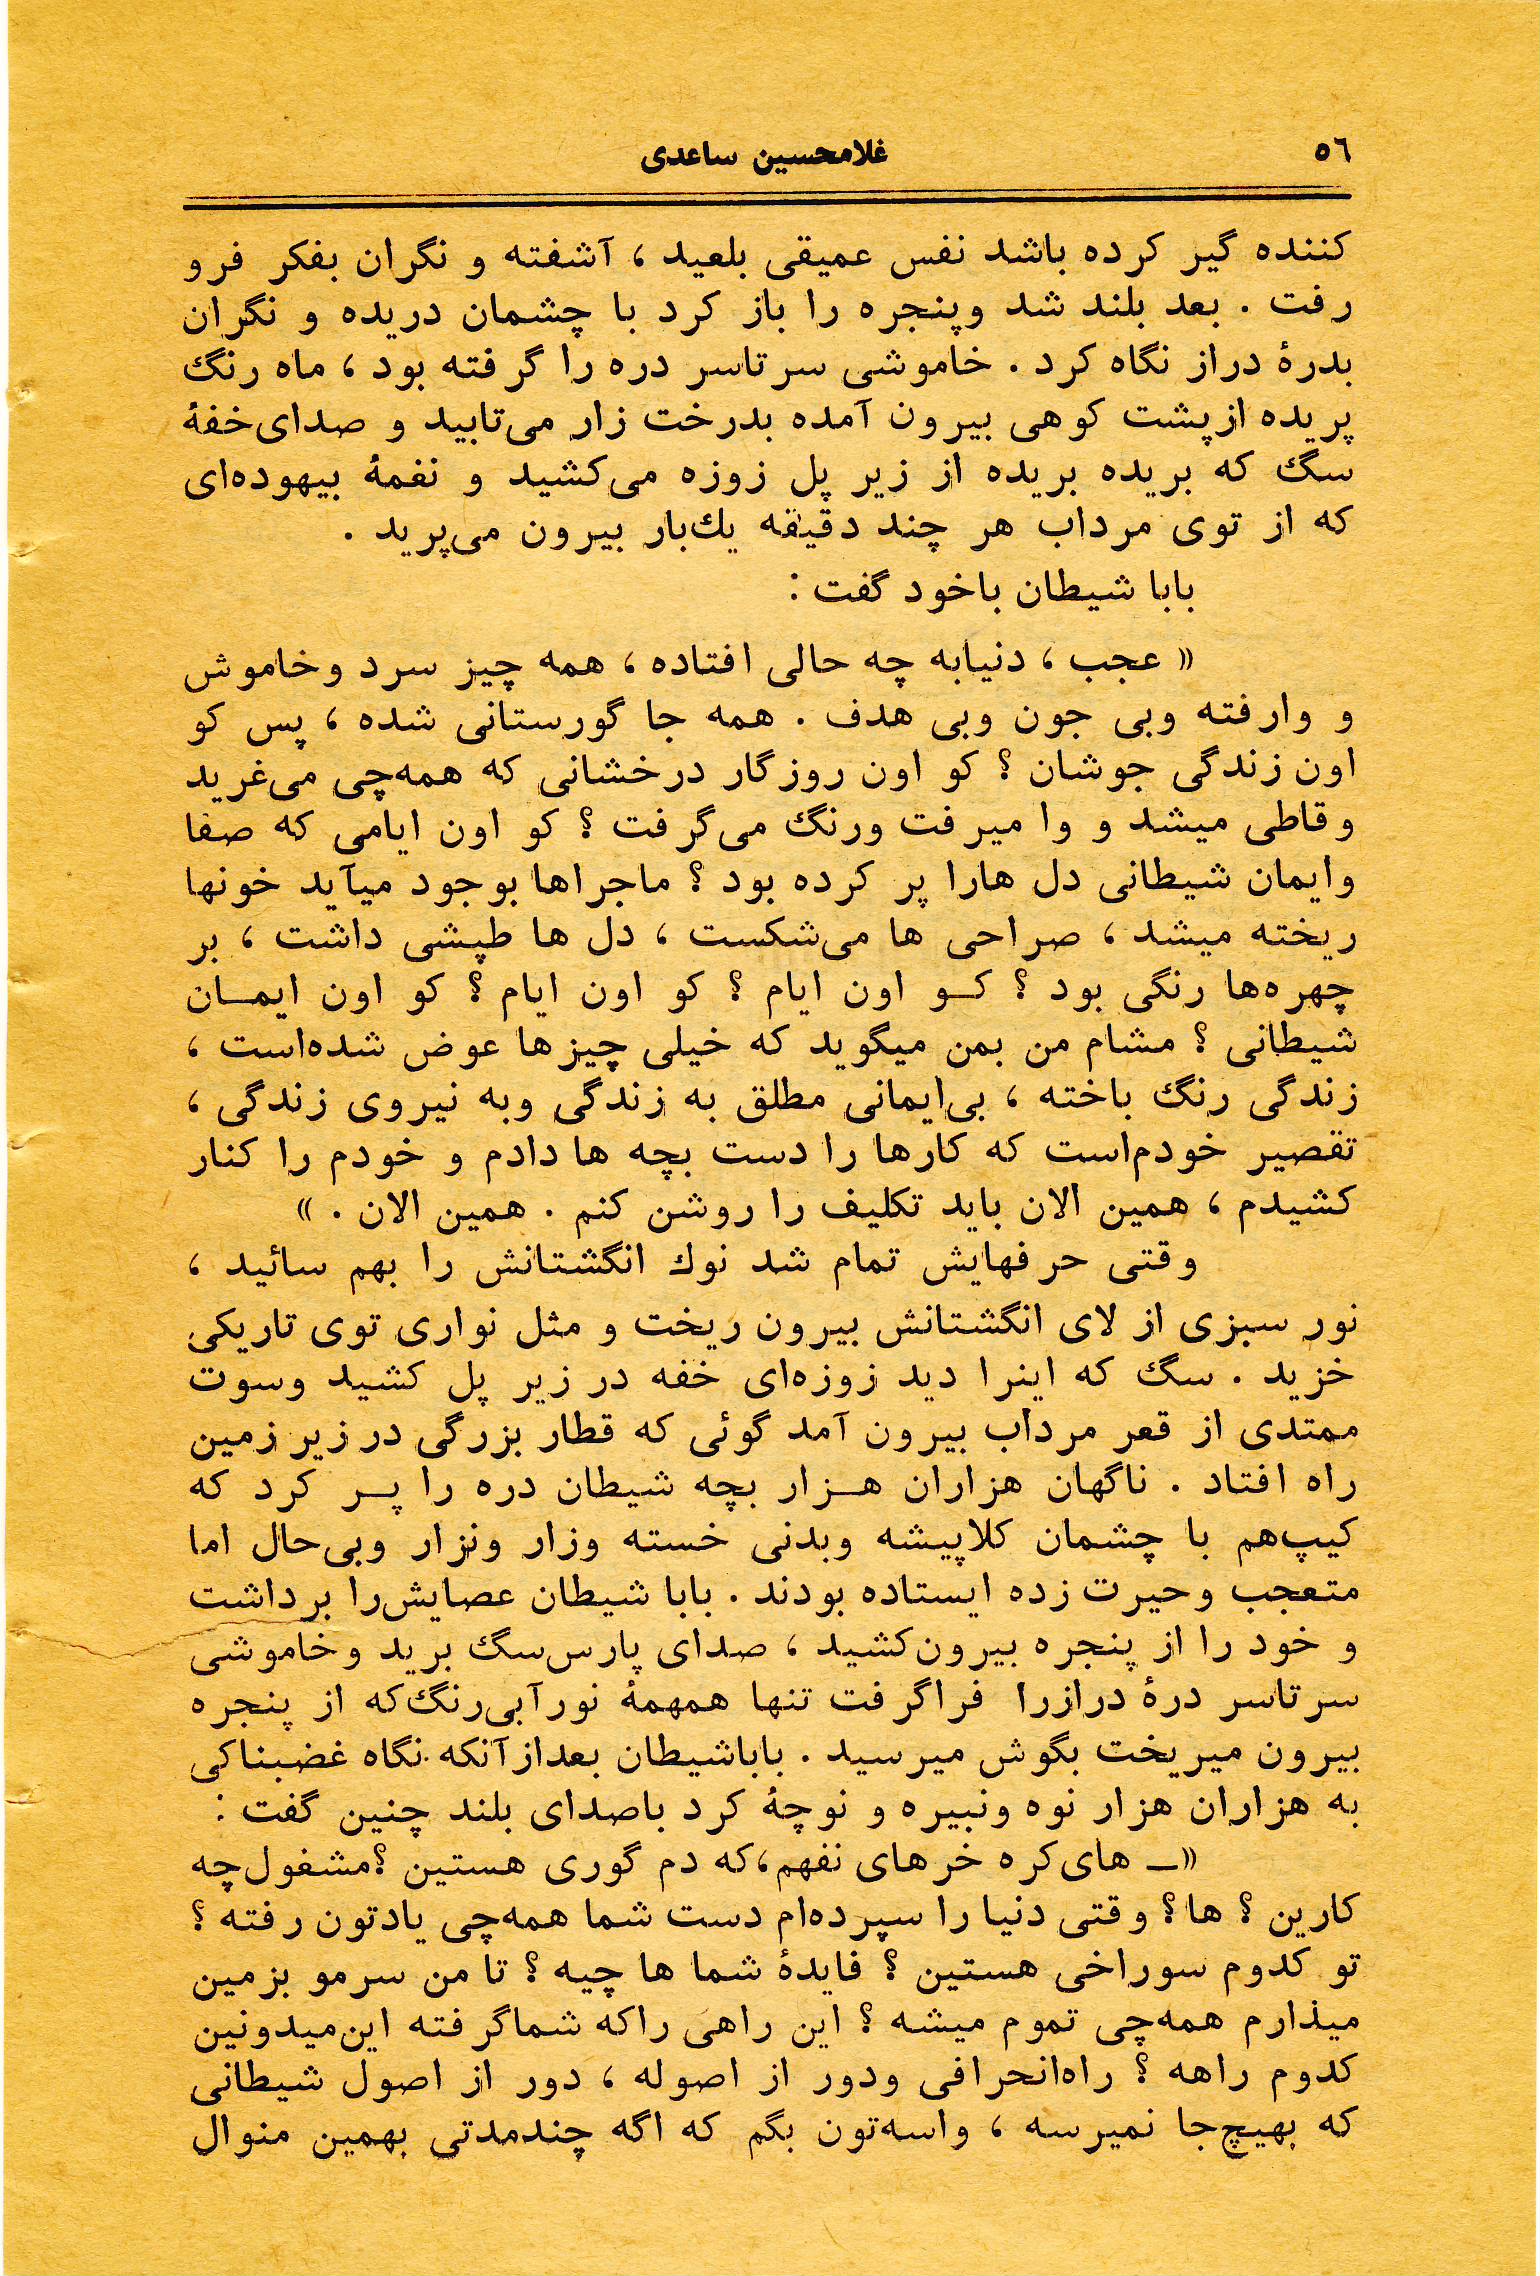 ٥٦
غلامحسین ساعدی
کننده گیر کرده باشد نفس عمیقی بلعید ، آشفته و نگران بفکر فرو
رفت . بعد بلند شد وپنجره را باز کرد با چشمان دریده و نگران
بدرهٔ دراز نگاه کرد . خاموشی سرتاسر دره را گرفته بود ، ماه رنگ
پریده ازپشت کوهی بیرون آمده بدرخت زار می‌تابید و صدای خفهٔ
سگ که بریده بریده از زیر پل زوزه می‌کشید و نغمهٔ بیهوده‌ای
که از توی مرداب هر چند دقیقه یك‌بار بیرون می‌پرید .
بابا شیطان باخود گفت :
« عجب ، دنیابه چه حالی افتاده ، همه چیز سرد وخاموش
و وارفته وبی جون وبی هدف . همه جا گورستانی شده ، پس کو
اون زندگی جوشان ؟ کو اون روزگار درخشانی که همه‌چی می‌غرید
وقاطی میشد و وا میرفت ورنگ می‌گرفت ؟ کو اون ایامی که صفا
وایمان شیطانی دل هارا پر کرده بود ؟ ماجراها بوجود میآید خونها
ریخته میشد ، صراحی ها می‌شکست ، دل ها طپشی داشت ، بر
چهره‌ها رنگی بود ؟ کـو اون ایام ؟ کو اون ایام ؟ کو اون ایمـان
شیطانی ؟ مشام من بمن میگوید که خیلی چیزها عوض شده‌است ،
زندگی رنگ باخته ، بی‌ایمانی مطلق به زندگی وبه نیروی زندگی ،
تقصیر خودم‌است که کارها را دست بچه ها دادم و خودم را کنار
کشیدم ، همین الان باید تکلیف را روشن کنم . همین الان . »
وقتی حرفهایش تمام شد نوك انگشتانش را بهم سائید ،
نور سبزی از لای انگشتانش بیرون ریخت و مثل نواری توی تاریکی
خزید . سگ که اینرا دید زوزه‌ای خفه در زیر پل کشید وسوت
ممتدی از قعر مرداب بیرون آمد گوئی که قطار بزرگی در زیر زمین
راه افتاد . ناگهان هزاران هـزار بچه شیطان دره را پـر کرد که
کیپ‌هم با چشمان کلاپیشه وبدنی خسته وزار ونزار وبی‌حال اما
متعجب وحیرت زده ایستاده بودند . بابا شیطان عصایش‌را برداشت
و خود را از پنجره بیرون‌کشید ، صدای پارس‌سگ برید وخاموشی
سرتاسر درهٔ درازرا فراگرفت تنها همهمهٔ نورآبی‌رنگ‌که از پنجره
بیرون میریخت بگوش میرسید . باباشیطان بعدازآنکه نگاه غضبناکی
به هزاران هزار نوه ونبیره و نوچهٔ کرد باصدای بلند چنین گفت :
«ـ های‌کره خرهای نفهم،که دم گوری هستین ؟مشغول‌چه
کارین ؟ ها؟ وقتی دنیا را سپرده‌ام دست شما همه‌چی یادتون رفته ؟
تو کدوم سوراخی هستین ؟ فایدهٔ شما ها چیه ؟ تا من سرمو بزمین
میذارم همه‌چی تموم میشه ؟ این راهی راکه شماگرفته این‌میدونین
کدوم راهه ؟ راه‌انحرافی ودور از اصوله ، دور از اصول شیطانی
که بهیچ‌جا نمیرسه ، واسه‌تون بگم که اگه چندمدتی بهمین منوال